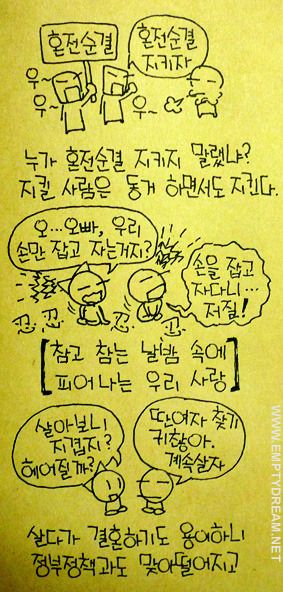 혼전순결
혼전순결
지키자
우~
우~
우~
누가 혼전순결 지키지 말랬냐?
지킬 사람은 동거 하면서도 지킨다.
오…오빠, 우리
손만 잡고 자는거지?
손을 잡고
자다니…
저질!
忍 忍 忍 忍
참고 참는 날밤 속에
피어나는 우리 사랑
살아보니
지겹지?
헤어질까?
딴여자 찾기
귀찮아.
계속살자
살다가 결혼하기도 용이하니
정부정책과도 맞아떨어지고
WWW.EMPTYDREAM.NET